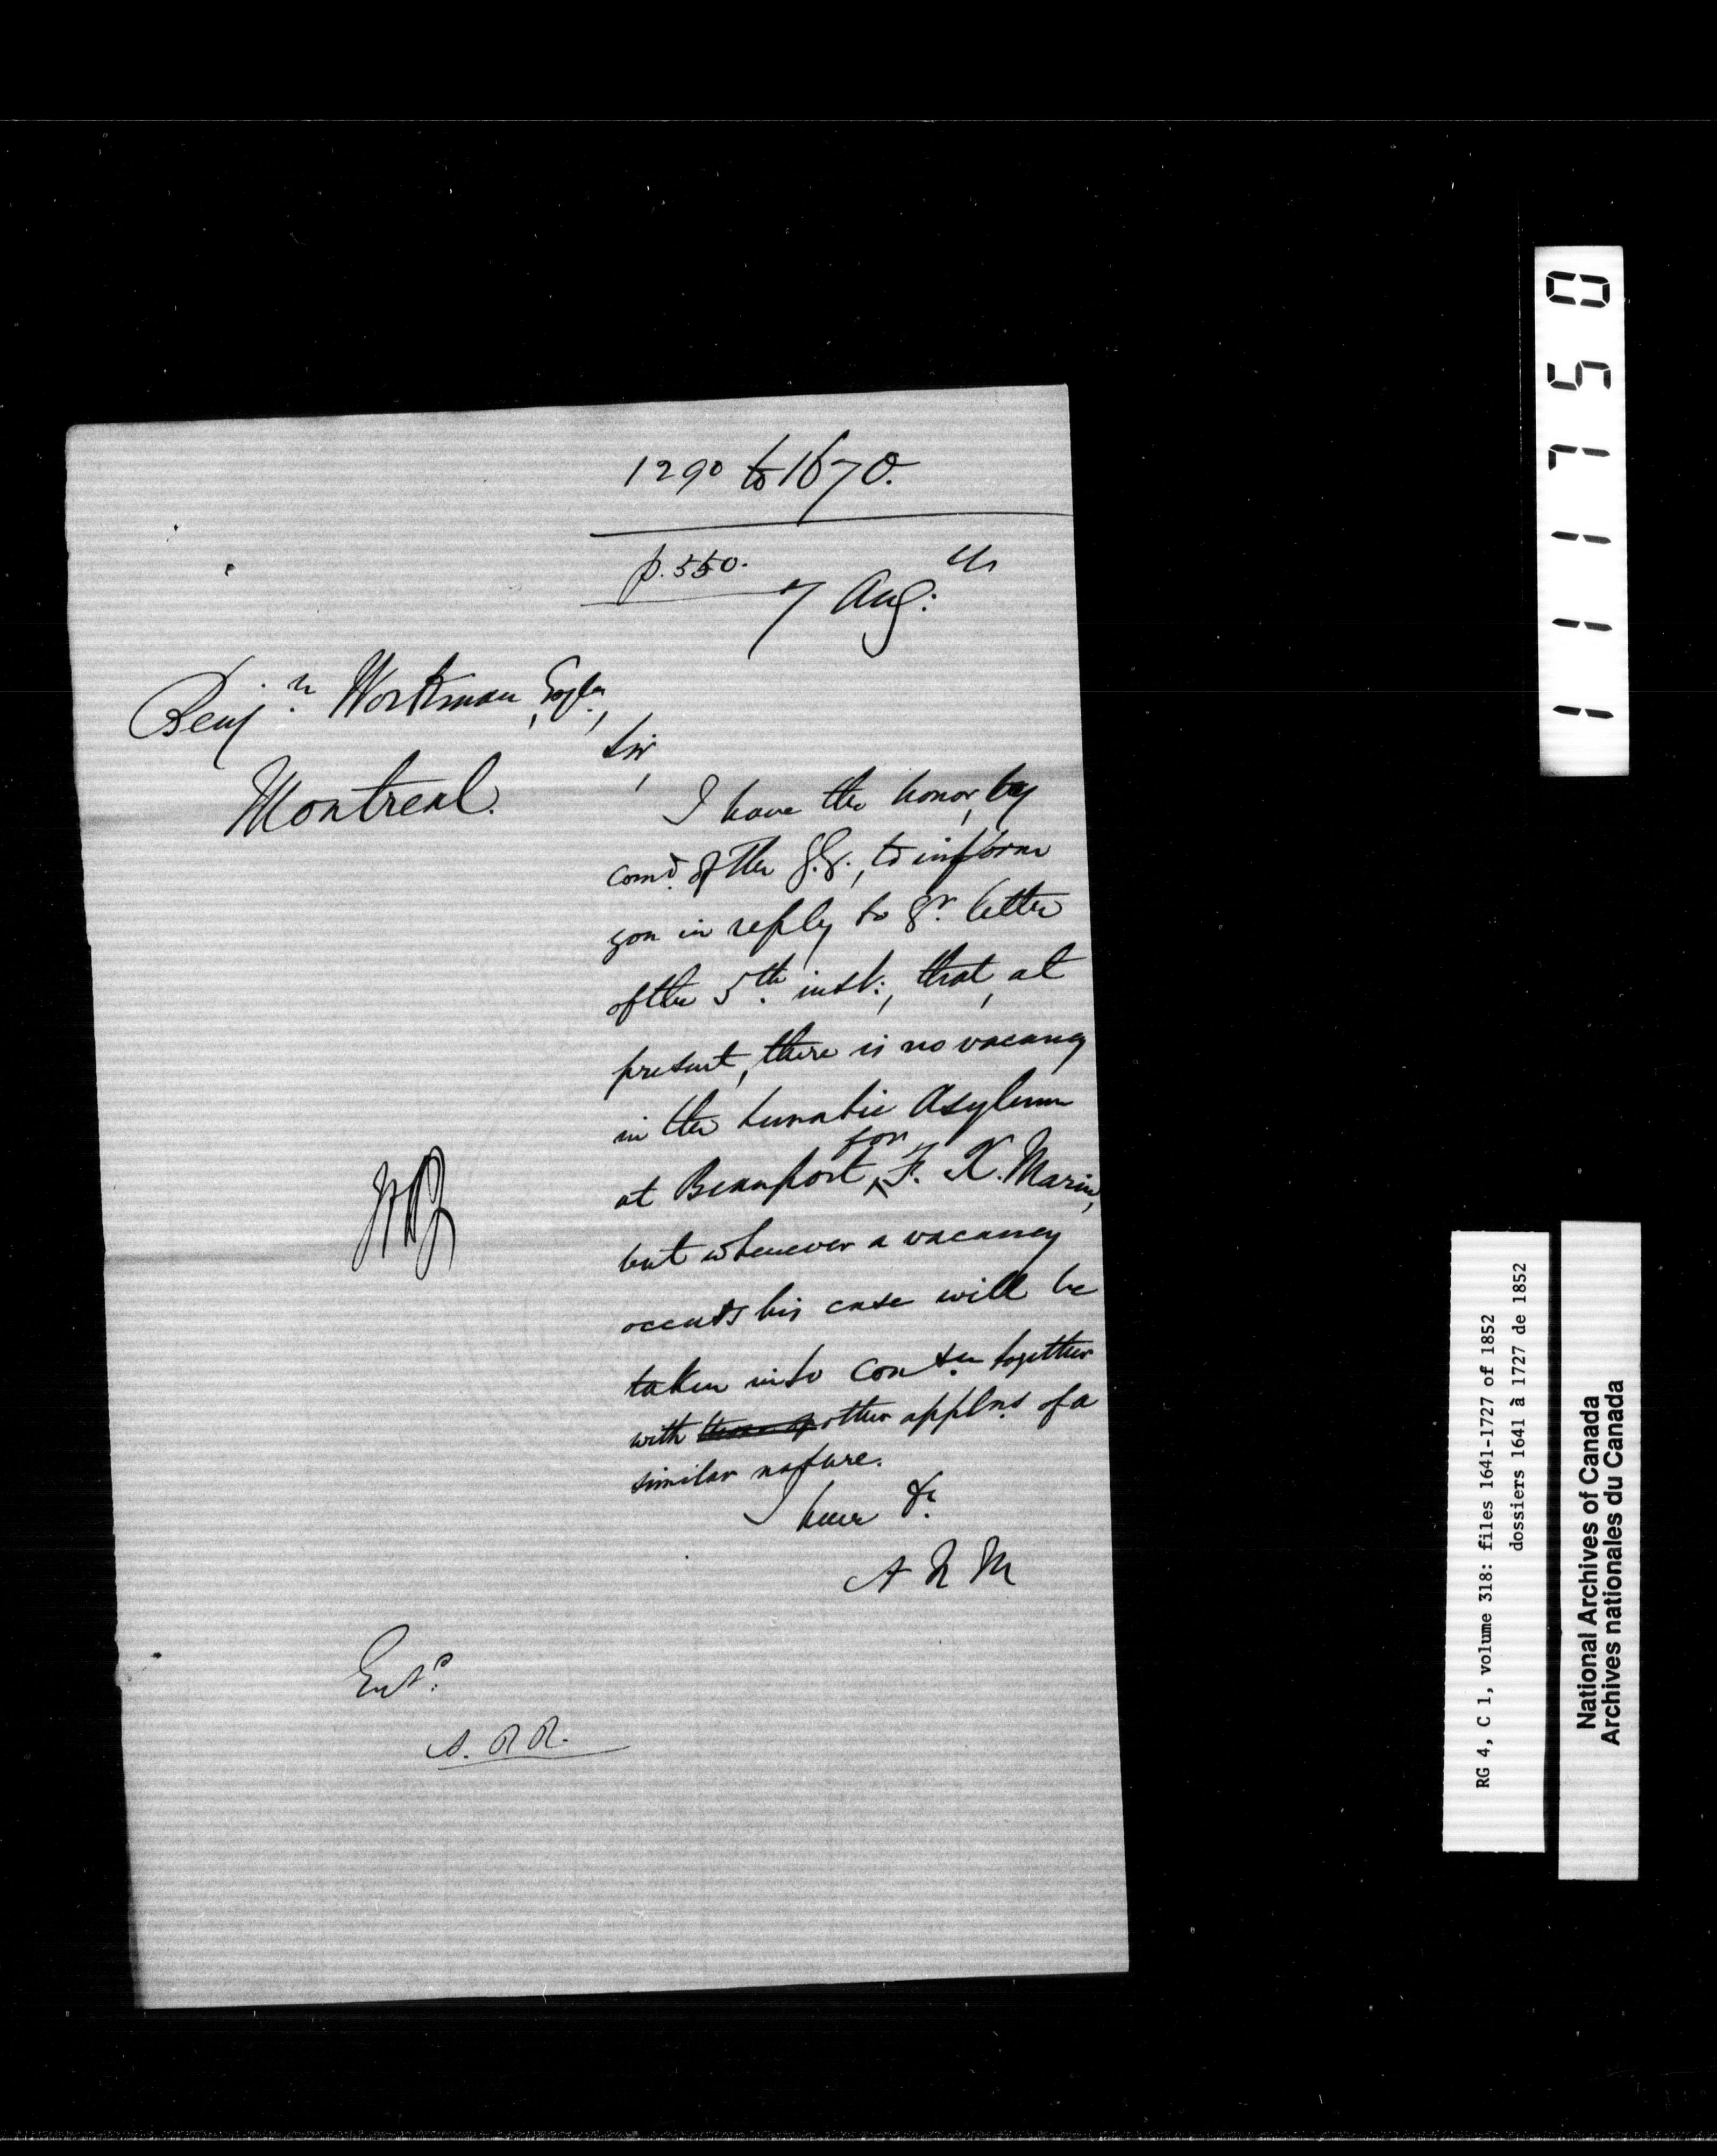 1290 to 1670.
p. 550.
7 Aug:
Benj.n Workman, Esq
Montreal.
Sir,
I have the honor, by
comd. of the G.G., to inform
you in reply to yr. letter
of the 5th. inst:, that, at
present, there is no vacancy
in the Lunatic Asylum
at Beauport, for F. X. Marin,
but whenever a vacancy
occurs his case will be
taken into Conson. together
with other applns. of a
similar nature.
I have &c.
A N M
Entd.
A. R R.
111750
RG 4, C 1, volume 318: files 1641-1727 of 1852
dossiers 1641 à 1727 de 1852
National Archives of Canada
Archives nationales du Canada